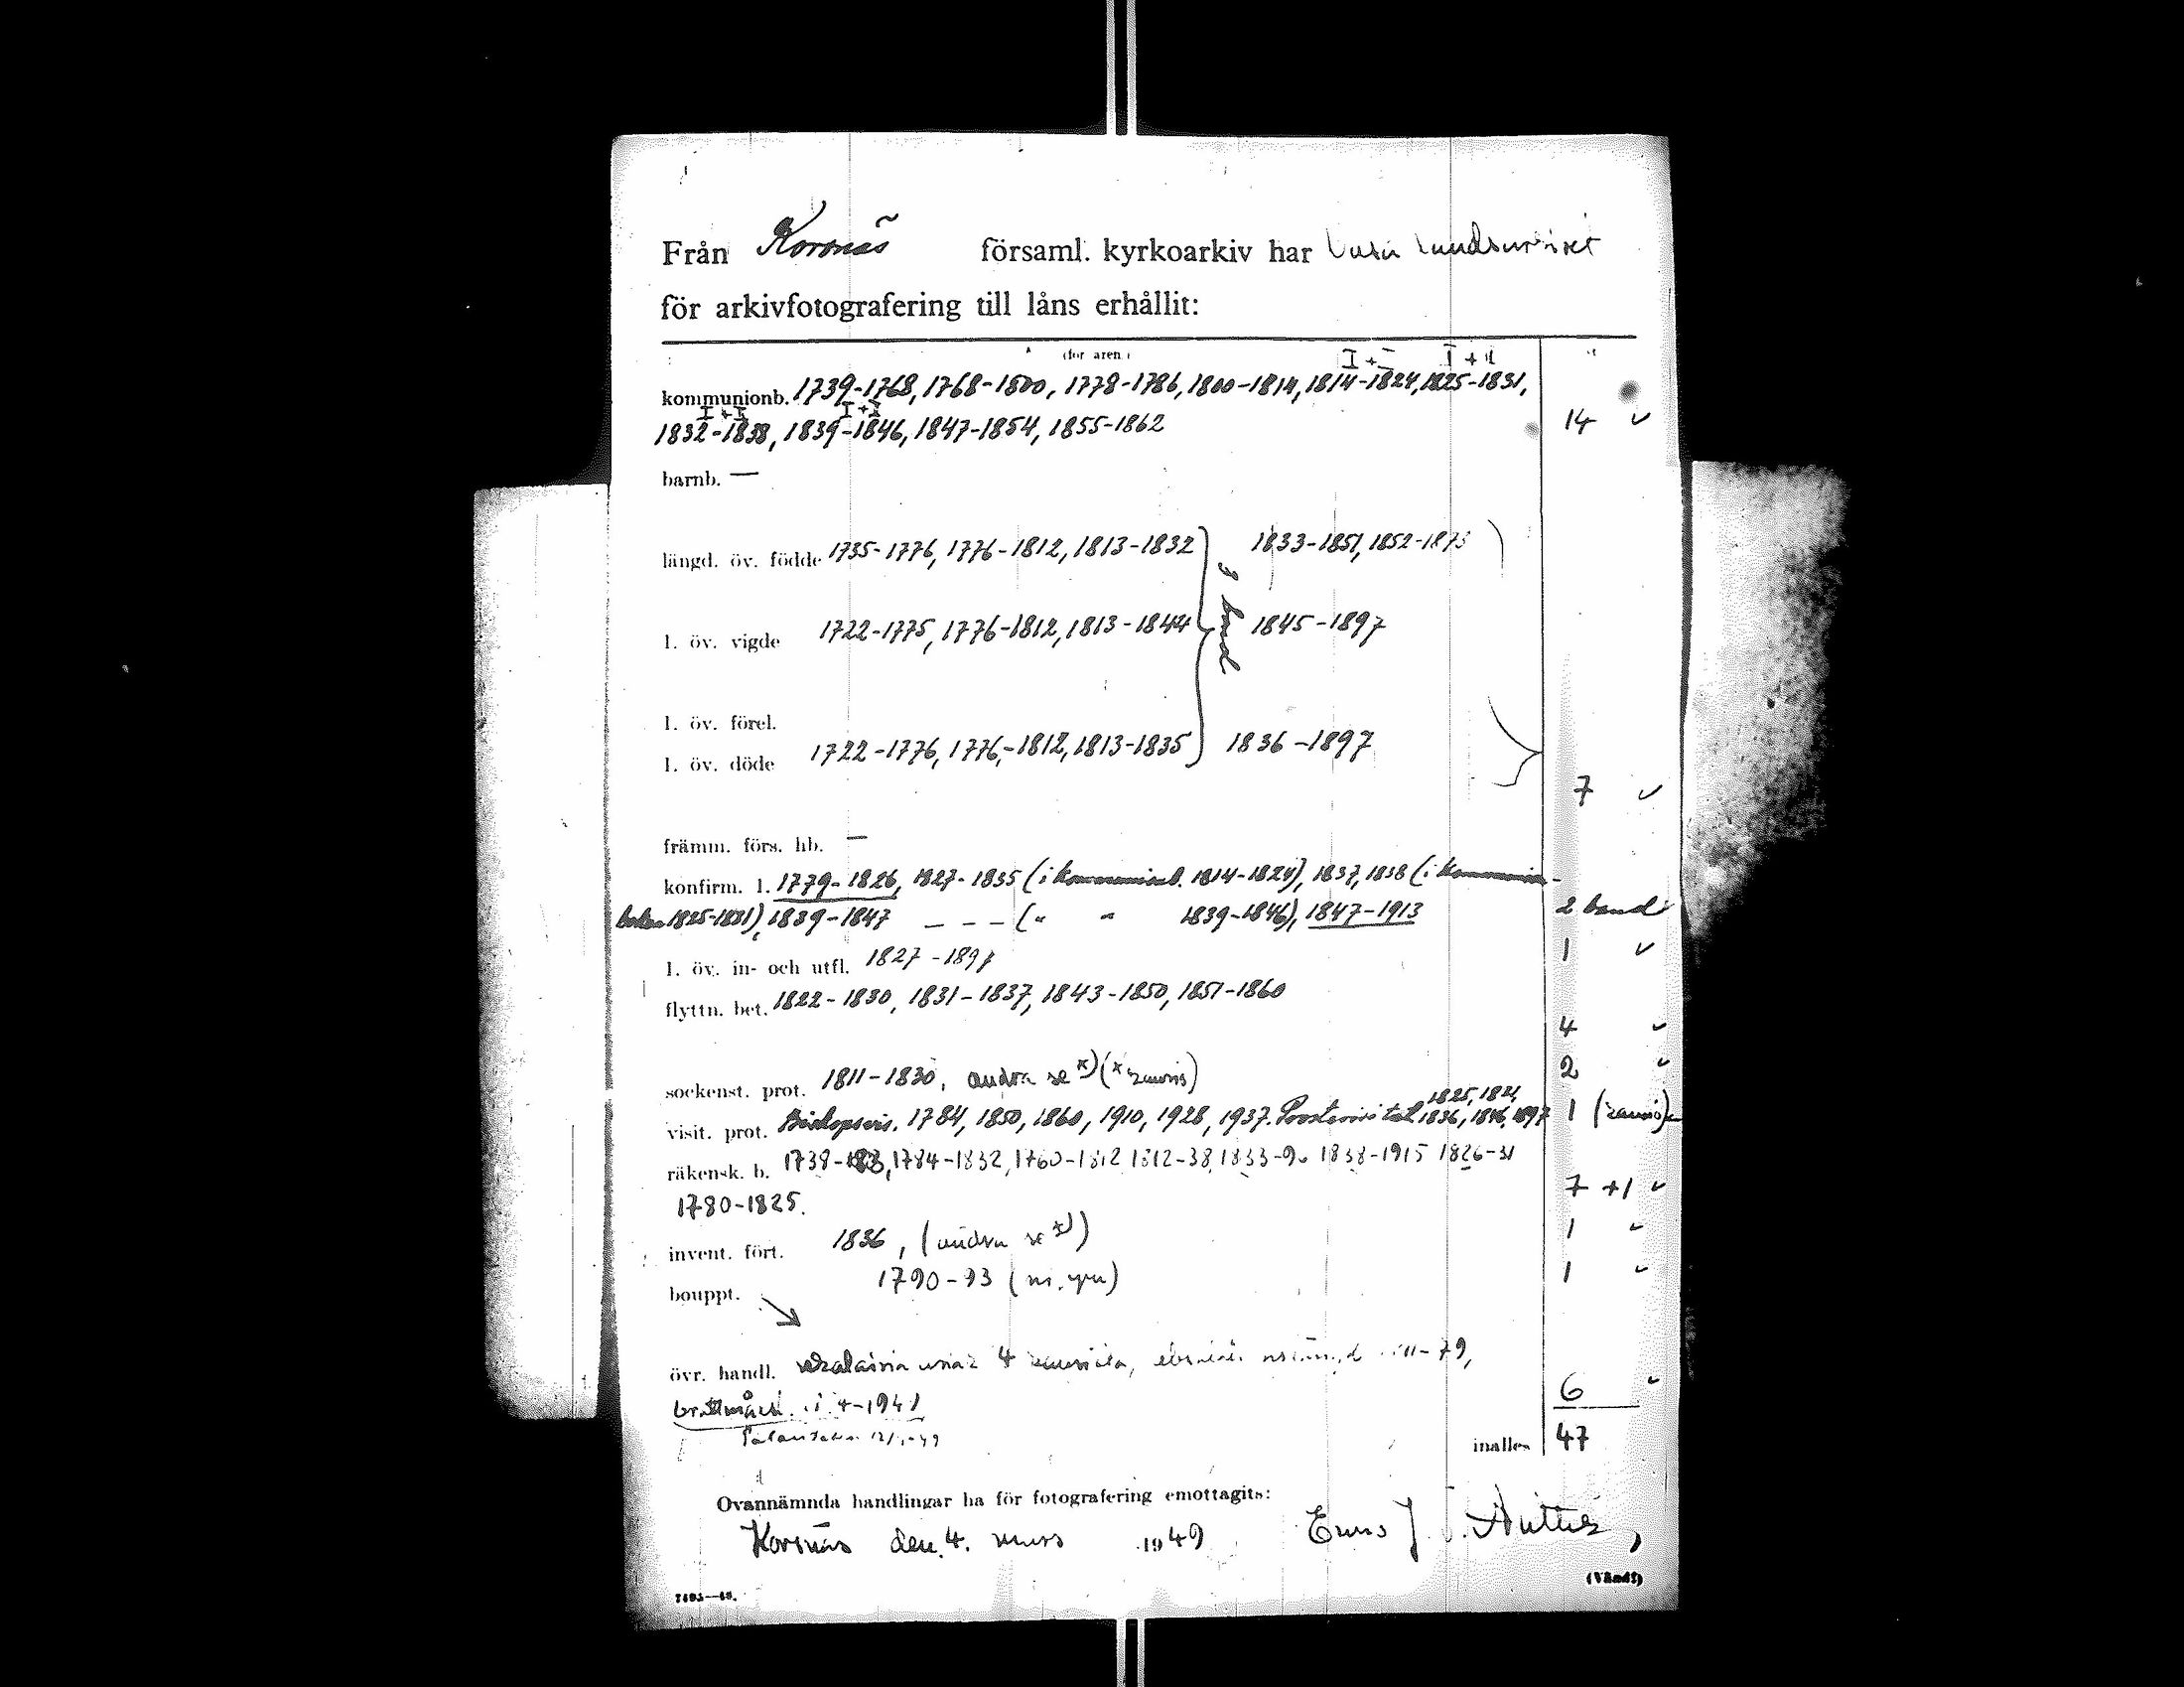 Från Korsnäs församl. kyrkoarkiv har Vasa landsarkivet
för arkivfotografering till låns erhållit:
(för åren)
I + I I + II
kommunionb. 1739-1768, 1768-1800, 1778-1786, 1800-1814, 1814-1824, 1825-1831,
I + I I + I
1832-1838, 1839-1846, 1847-1854, 1855-1862 14 ✓
barnb. —
längd. öv. födde 1735-1776, 1776-1812, 1813-1832 1833-1851, 1852-1873
3 band
l. öv. vigde 1722-1775, 1776-1812, 1813-1844 1845-1897
l. öv. förel.
l. öv. döde 1722-1776, 1776-1812, 1813-1835 1836-1897
7 ✓
främm. förs. hb. —
konfirm. l. 1779-1826, 1827-1835 (i kommunionb. 1814-1824), 1837, 1838 (i kommunion-
boken 1825-1831), 1839-1847 — — — (" " 1839-1846), 1847-1913 2 band
l. öv. in- och utfl. 1827-1897 1 ✓
flyttn. bet. 1822-1830, 1831-1837, 1843-1850, 1851-1860
4 ✓
sockenst. prot. 1811-1830, andra se x) 2 ✓
1825, 1821,
visit. prot. Biskopsvis. 1784, 1850, 1860, 1910, 1928, 1937. 1836, 1846, 1897 1
räkensk. b. 1784-1832, 1760-1812 1812-38, 1833-90 1838-1915 1826-31
1780-1825. 7 +1 ✓
invent. fört. 1836, (andra se x)) 1 ✓
bouppt. 1790-93 1 ✓
övr. handl. 4 79,
1941 6 ✓
inalles 47
Ovannämnda handlingar ha för fotografering emottagits:
Korsnäs den 4. mars 1949
(Vänd!)
7405—48.